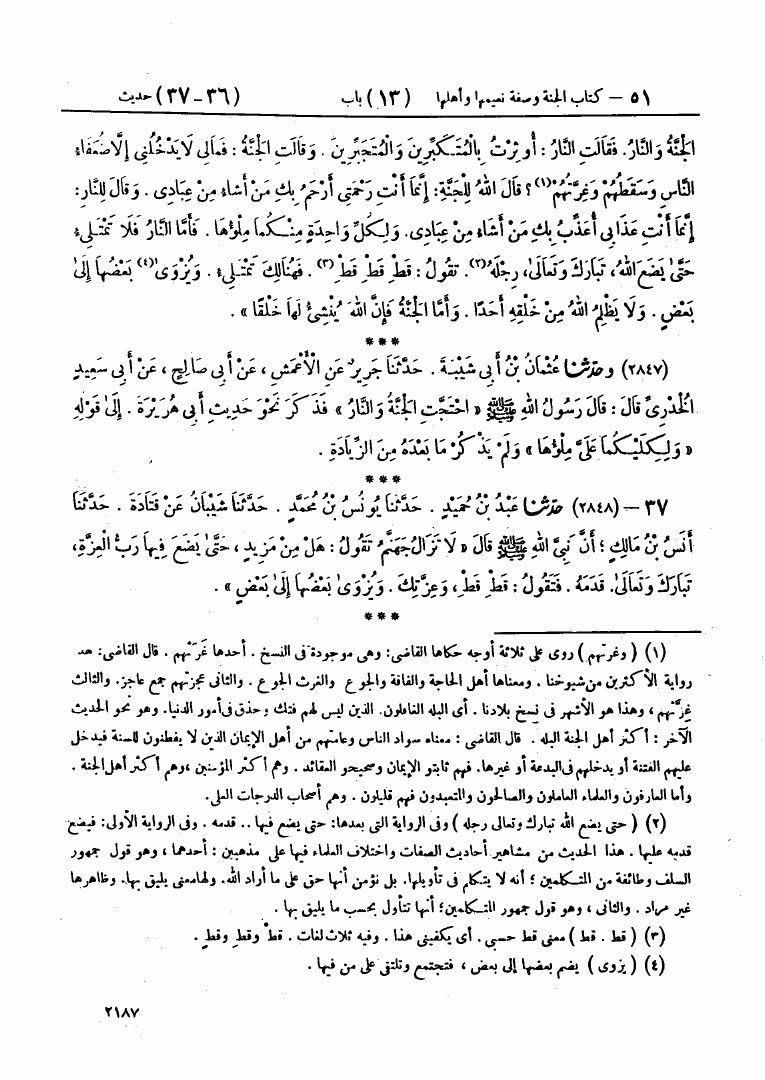 ٥١ – كتاب الجنة وصفة نعيمها وأهلها (١٣) باب (٣٦-٣٧) حديث
الْجَنَّةُ وَالنَّارُ. فَقَالَتِ النَّارُ : أُوثِرْتُ بِالْمُتَكَبِّرِينَ وَالْمُتَجَبِّرِينَ . وَقَالَتِ الْجَنَّةُ : فَمَالِي لَا يَدْخُلُنِي إِلَّا ضُعَفَاءُ
النَّاسِ وَسَقَطُهُمْ وَغِرَّتُهُمْ(١) ؟ قَالَ اللهُ لِلْجَنَّةِ: إِنَّمَا أَنْتِ رَحْمَتِي أَرْحَمُ بِكِ مَنْ أَشَاءُ مِنْ عِبَادِي . وَقَالَ لِلنَّارِ:
إِنَّمَا أَنْتِ عَذَابِي أُعَذِّبُ بِكِ مَنْ أَشَاءُ مِنْ عِبَادِي. وَلِكُلِّ وَاحِدَةٍ مِنْكُمَا مِلْؤُهَا . فَأَمَّا النَّارُ فَلَا تَمْتَلِىءُ
حَتَّىٰ يَضَعَ اللهُ، تَبَارَكَ وَتَعَالَىٰ، رِجْلَهُ(٢). تَقُولُ : قَطْ قَطْ قَطْ(٣) . فَهُنَالِكَ تَمْتَلِىءُ . وَيُزْوَىٰ(٤) بَعْضُهَا إِلَىٰ
بَعْضٍ . وَلَا يَظْلِمُ اللهُ مِنْ خَلْقِهِ أَحَدًا . وَأَمَّا الْجَنَّةُ فَإِنَّ اللهَ يُنْشِئُ لَهَا خَلْقًا » .
***
(٢٨٤٧) وحدثنا عُثْمَانُ بْنُ أَبِي شَيْبَةَ . حَدَّثَنَا جَرِيرٌ عَنِ الْأَعْمَشِ ، عَنْ أَبِي صَالِحٍ ، عَنْ أَبِي سَعِيدٍ
الْخُدْرِيِّ قَالَ : قَالَ رَسُولُ اللهِ ﷺ « احْتَجَّتِ الْجَنَّةُ وَالنَّارُ » فَذَكَرَ نَحْوَ حَدِيثِ أَبِي هُرَيْرَةَ . إِلَىٰ قَوْلِهِ
« وَلِكِلَيْكُمَا عَلَيَّ مِلْؤُهَا » وَلَمْ يَذْكُرْ مَا بَعْدَهُ مِنَ الزِّيَادَةِ .
***
٣٧ – (٢٨٤٨) حدثنا عَبْدُ بْنُ حُمَيْدٍ . حَدَّثَنَا يُونُسُ بْنُ مُحَمَّدٍ . حَدَّثَنَا شَيْبَانُ عَنْ قَتَادَةَ . حَدَّثَنَا
أَنَسُ بْنُ مَالِكٍ ؛ أَنَّ نَبِيَّ اللهِ ﷺ قَالَ « لَا تَزَالُ جَهَنَّمُ تَقُولُ : هَلْ مِنْ مَزِيدٍ ، حَتَّىٰ يَضَعَ فِيهَا رَبُّ الْعِزَّةِ،
تَبَارَكَ وَتَعَالَىٰ، قَدَمَهُ . فَتَقُولُ : قَطْ قَطْ، وَعِزَّتِكَ . وَيُزْوَىٰ بَعْضُهَا إِلَىٰ بَعْضٍ » .
***
(١) ( وغرتهم ) روى على ثلاثة أوجه حكاها القاضى: وهى موجودة فى النسخ . أحدها غَرَثهم . قال القاضى: هذه
رواية الأكثرين من شيوخنا . ومعناها أهل الحاجة والفاقة والجوع والغرث الجوع . والثانى عجزتهم جمع عاجز. والثالث
غِرَّتهم ، وهذا هو الأشهر فى نسخ بلادنا . أى البله الغافلون. الذين ليس لهم فتك وحذق فى أمور الدنيا. وهو نحو الحديث
الآخر : أكثر أهل الجنة البله . قال القاضى : معناه سواد الناس وعامتهم من أهل الإيمان الذين لا يفطنون للسنة فيدخل
عليهم الفتنة أو يدخلهم فى البدعة أو غيرها. فهم ثابتو الإيمان وصحيحو العقائد . وهم أكثر المؤمنين ، وهم أكثر أهل الجنة .
وأما العارفون والعلماء العاملون والصالحون والمتعبدون فهم قليلون . وهم أصحاب الدرجات العلى.
(٢) ( حتى يضع الله تبارك وتعالى رجله ) وفى الرواية التى بعدها: حتى يضع فيها .. قدمه . وفى الرواية الأولى: فيضع
قدمه عليها . هذا الحديث من مشاهير أحاديث الصفات واختلاف العلماء فيها على مذهبين : أحدهما ، وهو قول جمهور
السلف وطائفة من المتكلمين ؛ أنه لا يتكلم فى تأويلها. بل نؤمن أنها حق على ما أراد الله. ولها معنى يليق بها. وظاهرها
غير مراد . والثانى ، وهو قول جمهور المتكلمين؛ أنها تتأول بحسب ما يليق بها .
(٣) ( قط . قط ) معنى قط حسبى . أى يكفينى هذا . وفيه ثلاث لغات . قطْ وقطِ وقطٍ .
(٤) ( يزوى ) يضم بعضها إلى بعض ، فتجتمع وتلتقى على من فيها .
٢١٨٧